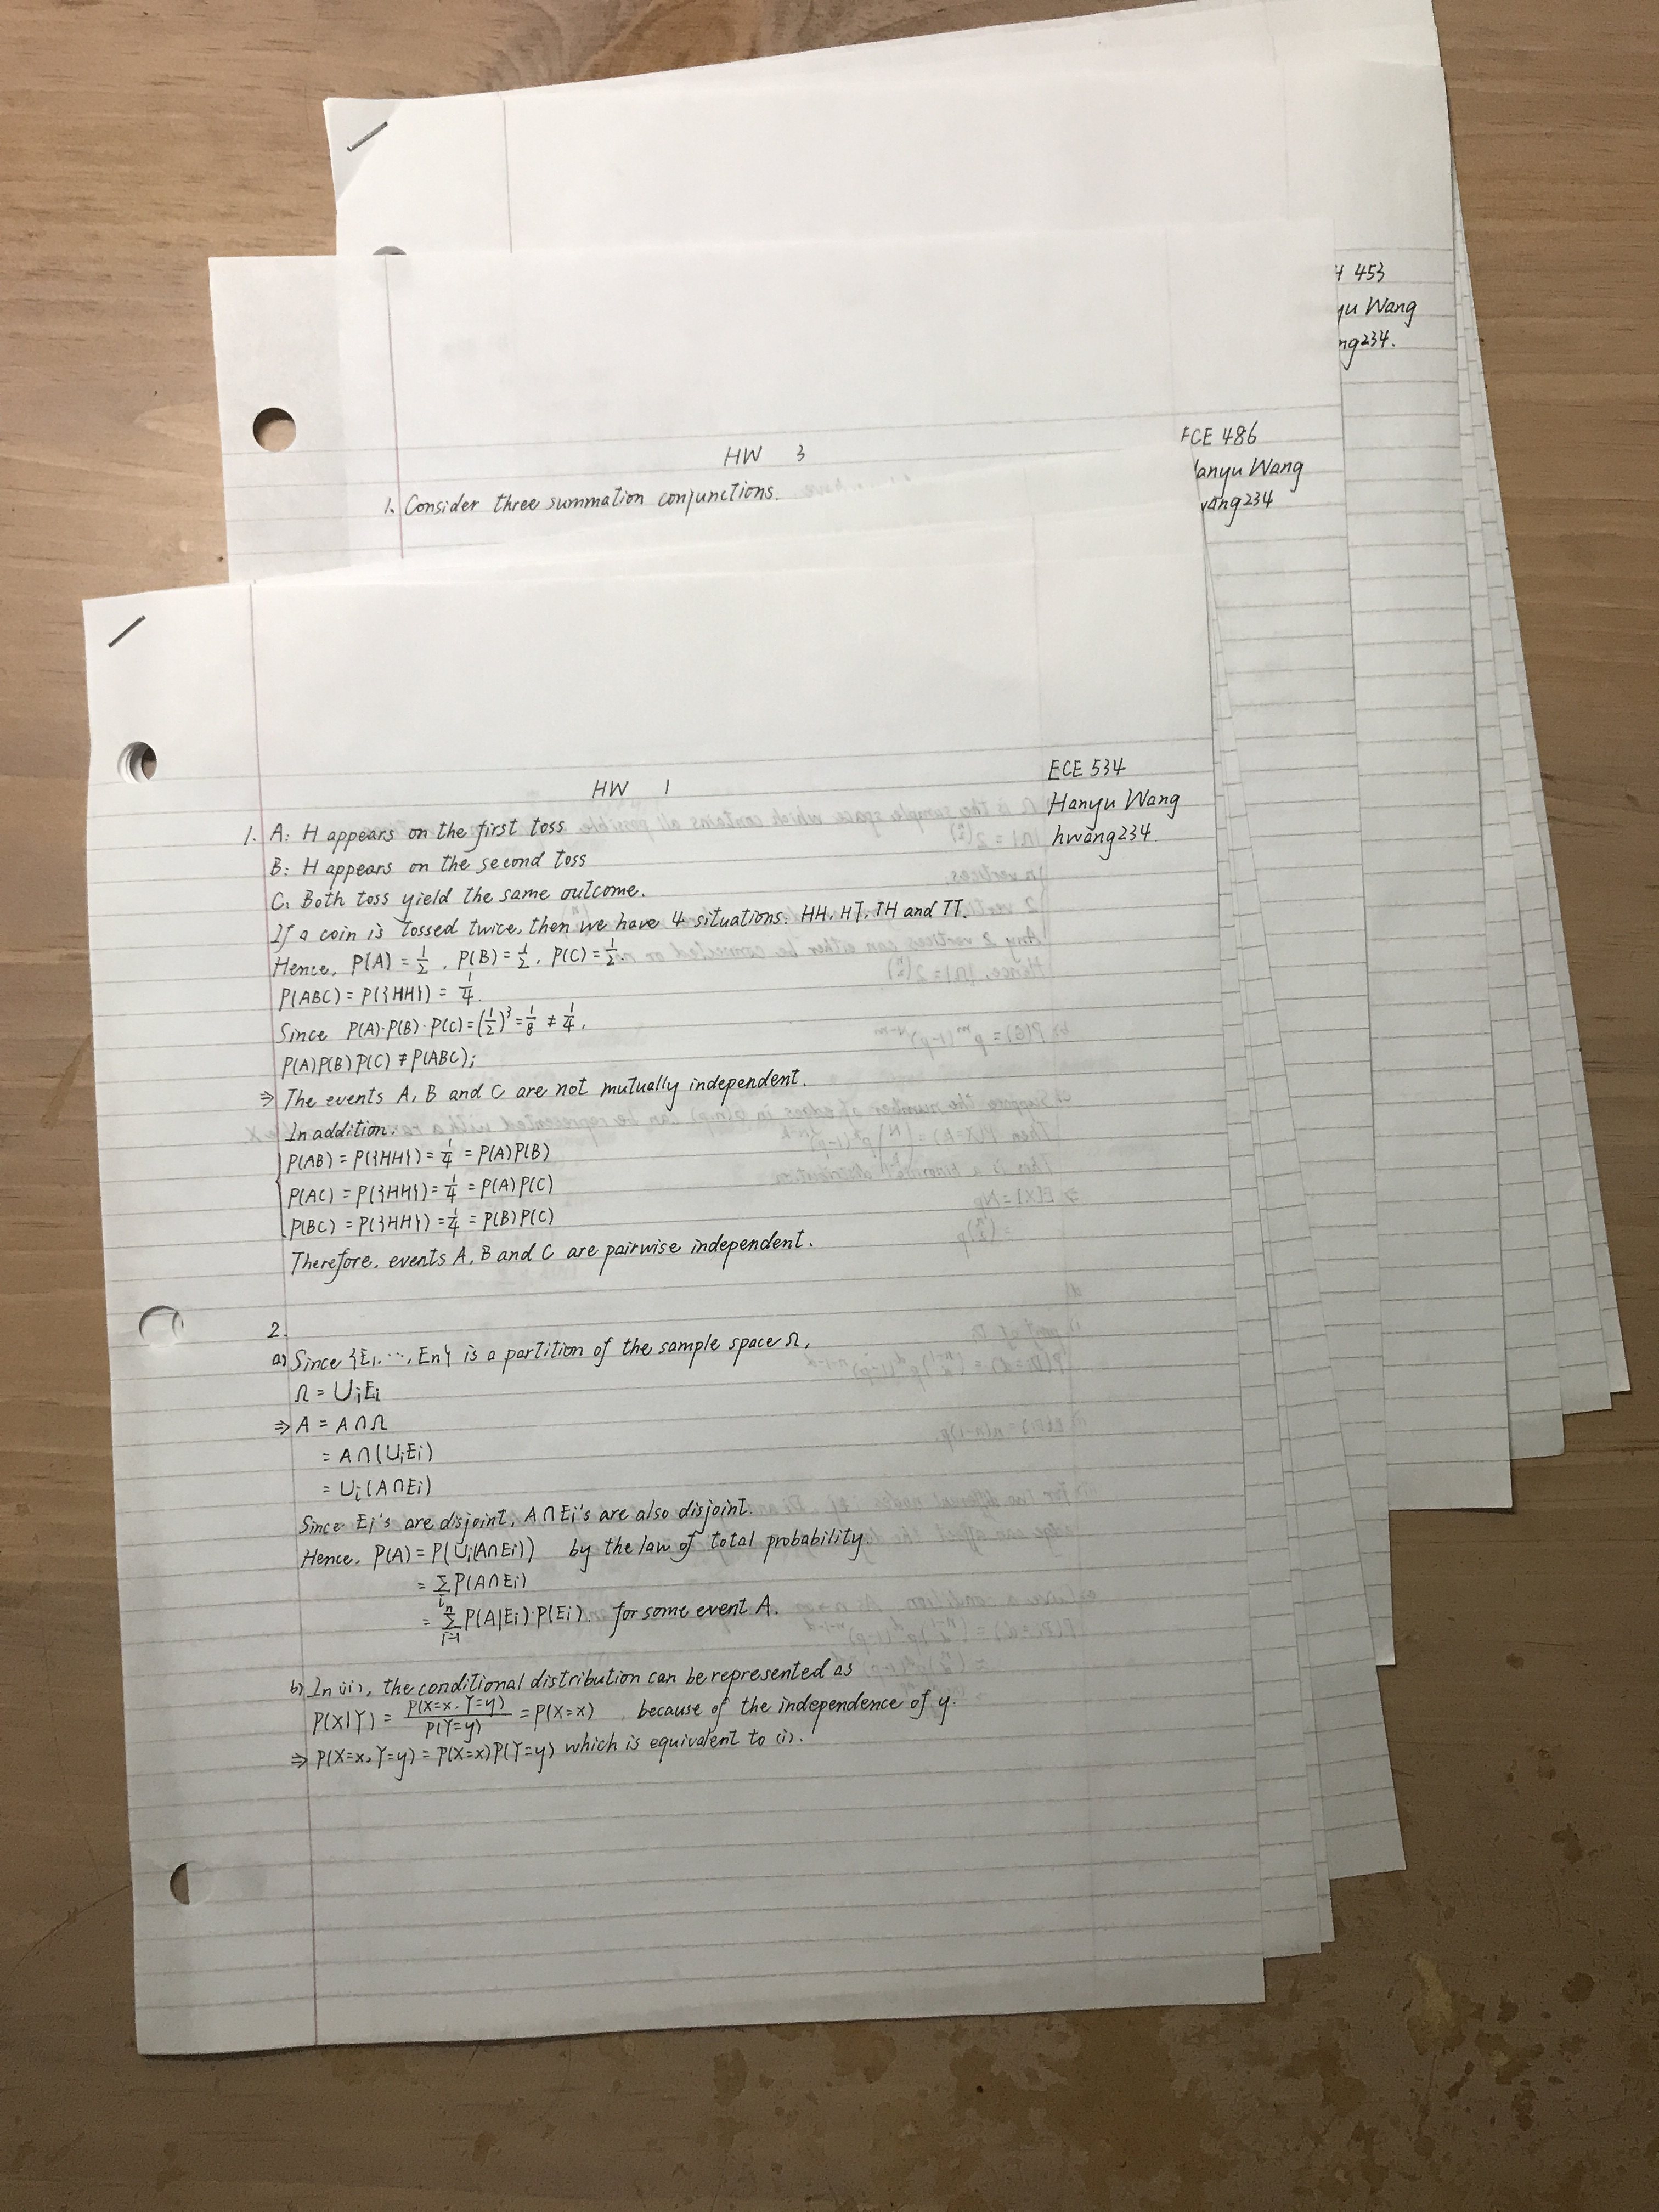 H 453
yu Wang
ng234.
ECE 486
anyu Wang
wang234
HW 3
1. Consider three summation conjunctions.
ECE 534
Hanyu Wang
hwang234.
HW 1
1. A: H appears on the first toss
B: H appears on the second toss
C: Both toss yield the same outcome.
If a coin is tossed twice, then we have 4 situations: HH, HT, TH and TT.
Hence, P(A) = 1/2, P(B) = 1/2, P(C) = 1/2.
P(ABC) = P({HH}) = 1/4.
Since P(A)·P(B)·P(C) = (1/2)³ = 1/8 ≠ 1/4,
P(A)P(B)P(C) ≠ P(ABC);
⇒ The events A, B and C are not mutually independent.
In addition:
P(AB) = P({HH}) = 1/4 = P(A)P(B)
P(AC) = P({HH}) = 1/4 = P(A)P(C)
P(BC) = P({HH}) = 1/4 = P(B)P(C)
Therefore, events A, B and C are pairwise independent.
2.
a) Since {E₁, ···, En} is a partition of the sample space Ω,
Ω = ∪ᵢEᵢ
⇒ A = A∩Ω
= A∩(∪ᵢEᵢ)
= ∪ᵢ(A∩Eᵢ)
Since Eᵢ's are disjoint, A∩Eᵢ's are also disjoint.
Hence, P(A) = P(∪ᵢ(A∩Eᵢ)) by the law of total probability.
= Σᵢ P(A∩Eᵢ)
= Σᵢ₌₁ⁿ P(A|Eᵢ)·P(Eᵢ). for some event A.
b) In (ii), the conditional distribution can be represented as
P(X|Y) = P(X=x, Y=y)/P(Y=y) = P(X=x) because of the independence of y.
⇒ P(X=x, Y=y) = P(X=x)P(Y=y) which is equivalent to (i).